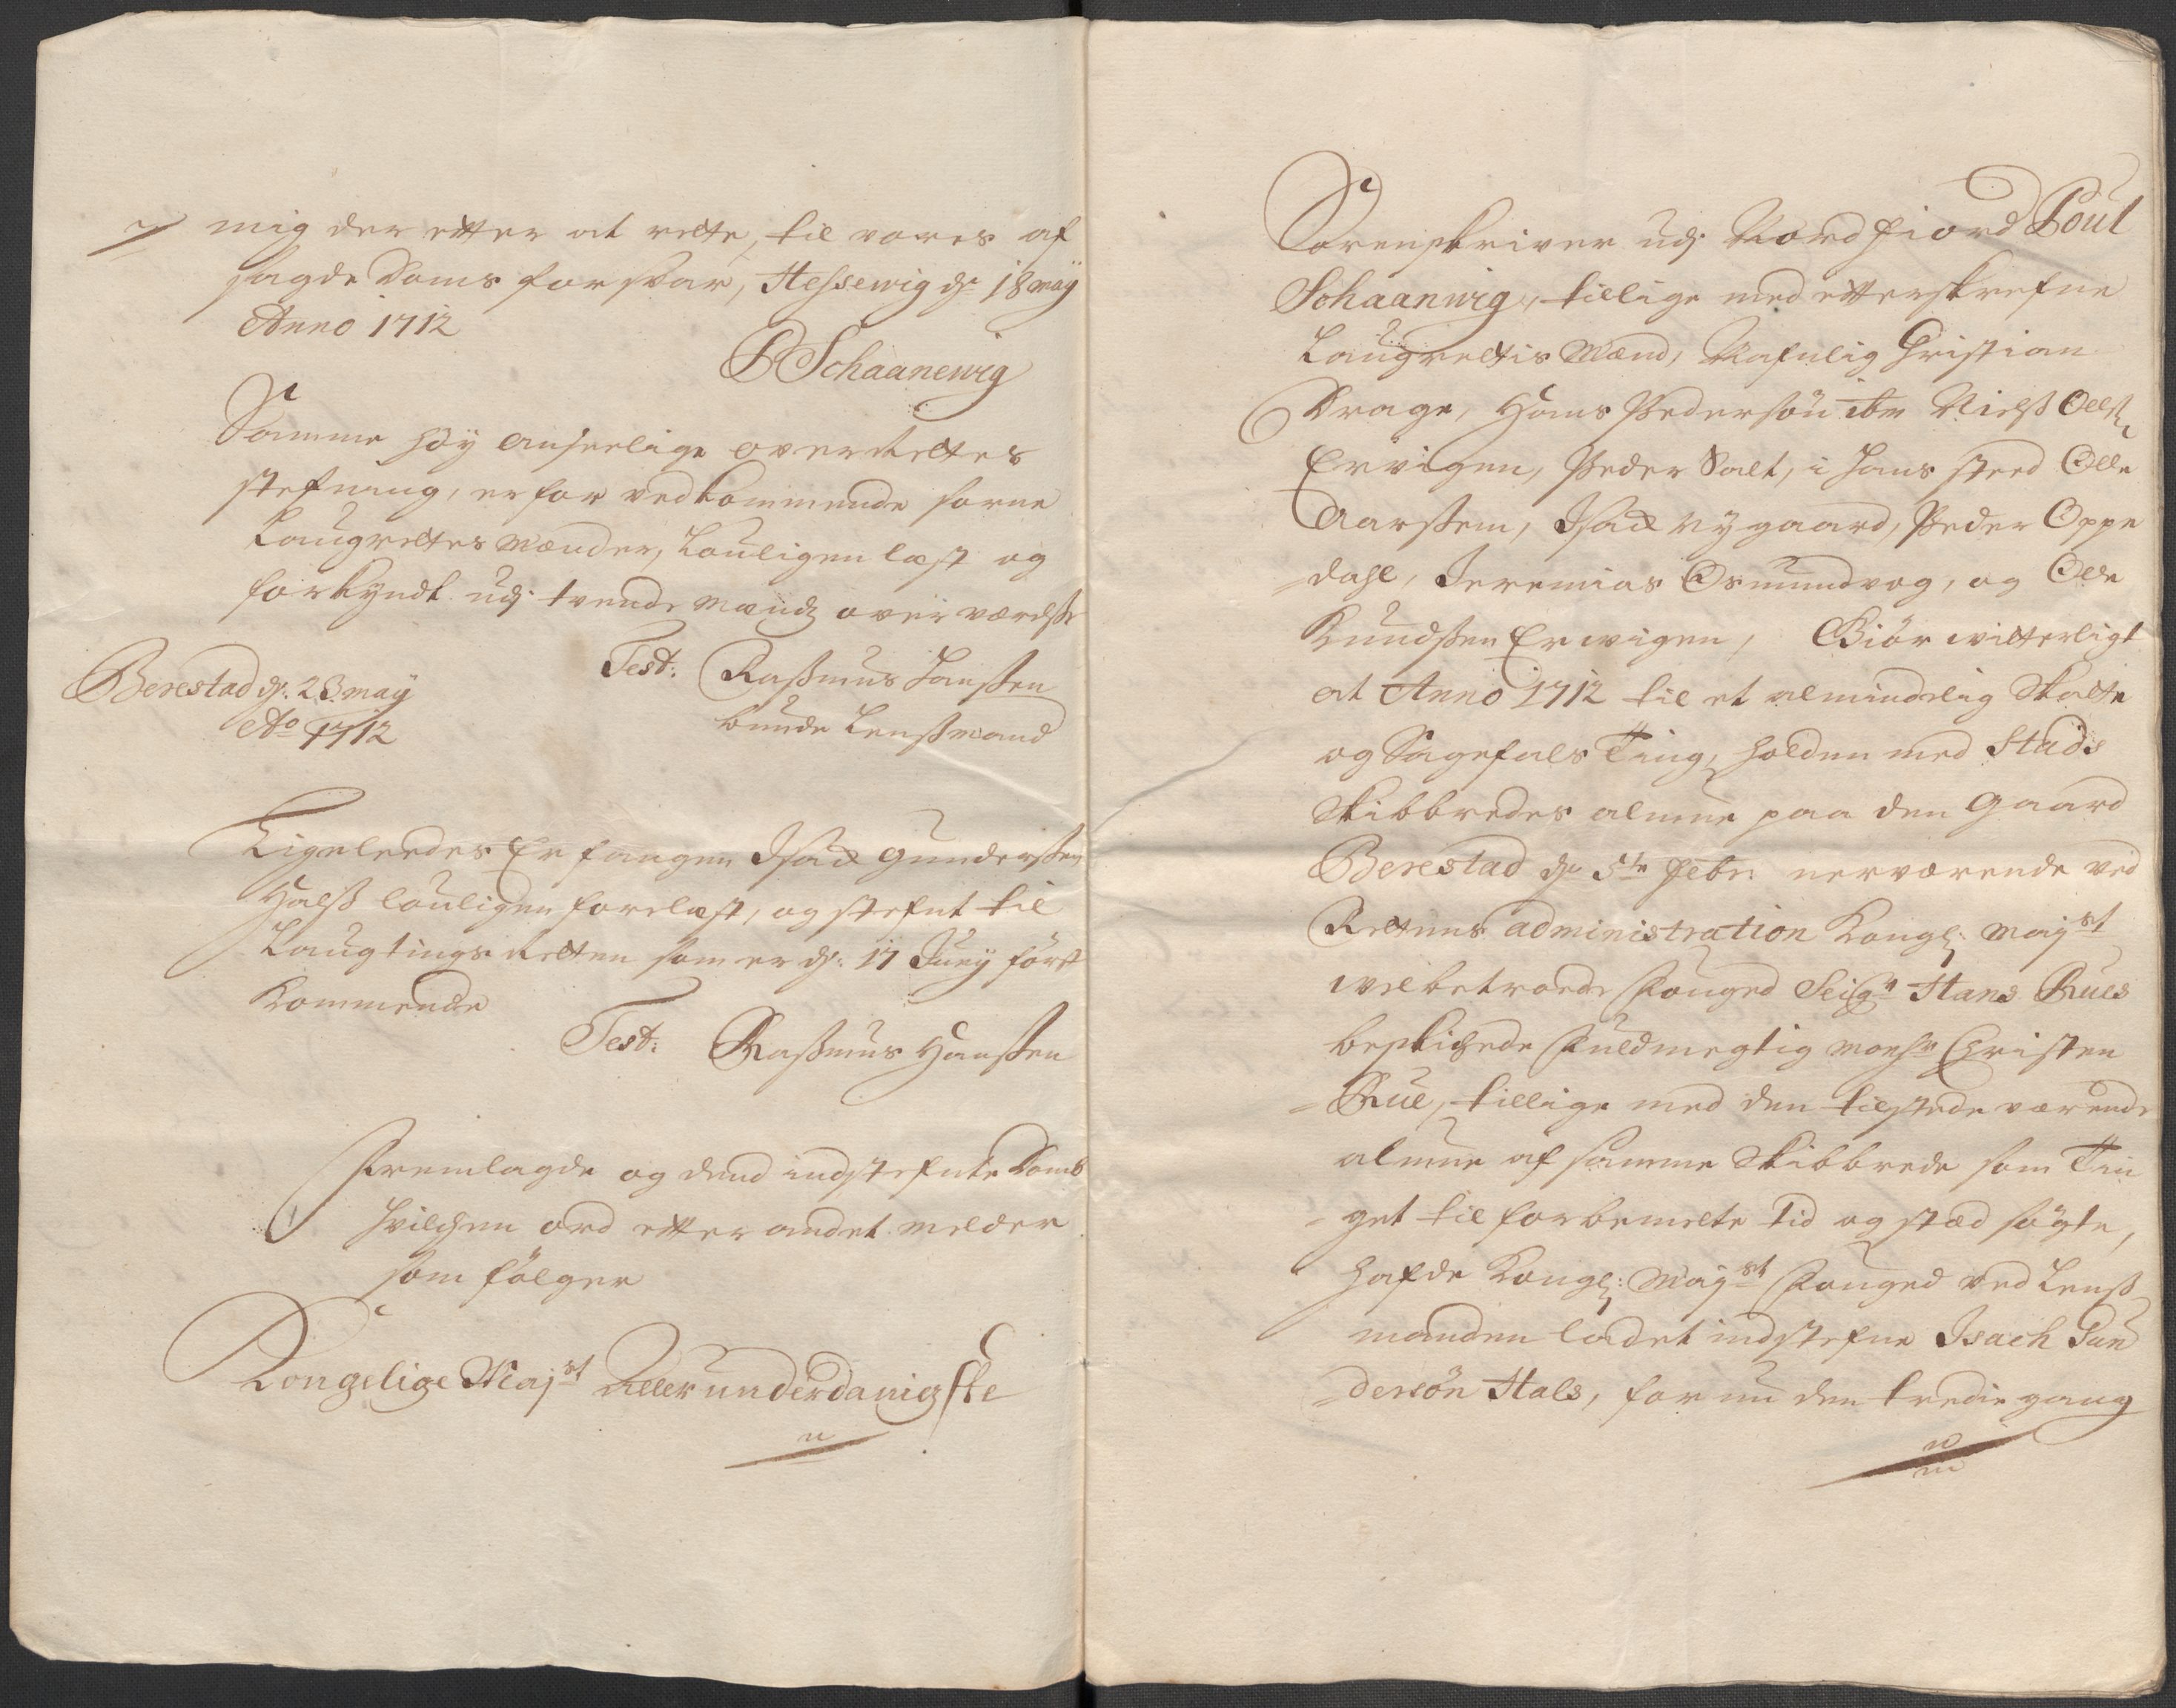 mig der etter at rette, til vores af
sagde Doms forsvar, Hessewig d: 18 may
Anno 1712
P Schaanewig
Samme høy anseelige overRettes
stefning, er for vedkommende sorne
Laugrettes Mænder, Louligen læst og
forkyndt udj tvende Mænds overværelse
Berestad d: 23 may
Ao 1712
Test: Rassmus Hanssen
bunde Lenssmand
Ligeleedes Er fangen Isach Gunderssen
Halss louligen forelæst, og stefnt til
Laugtings Retten som er d: 17 Juny först
kommende
Test: Rassmus Hanssen
Fremlagde og dend indstefnte Domb
hvilchen ord etter andet melder
som følger
Kongelige Majst Allerunderdanigste
Sorenskriver udj Nordfiord Poul
Schaanwig, tillige med etterskrefne
Laugrettis Mænd, Nafnlig Christian
Krage, Hans Pedersön ibm Nielss Olss:
Ervigen, Peder Salt, i hans sted Olle
Aarssem, Isach Nygaard, Peder Oppe
dahl, Jeremias Osmundvog, og Olle
Knudssen Erwigen, Giör witterligt
at Anno 1712 til et almindelig Skatte
og Sagefals Ting, holden med Stads
Skibbredes almue paa den Gaard
Berestad d: 5te Febr: nerværende ved
Rettens administration Kongl: Majst
welbetroede Fouged Seigr Hans Rues
beskichede Fuldmegtig Monsr Christen
Rue, tillige med den tilstede værende
almue af samme Skibbrede som Tin
get til forbemelte tid og stæd søgte,
hafde Kongl: Majst Fouged ved Lenss
manden ladet indstefne Isach Gun
dersön Hals, for nu den tredie gang